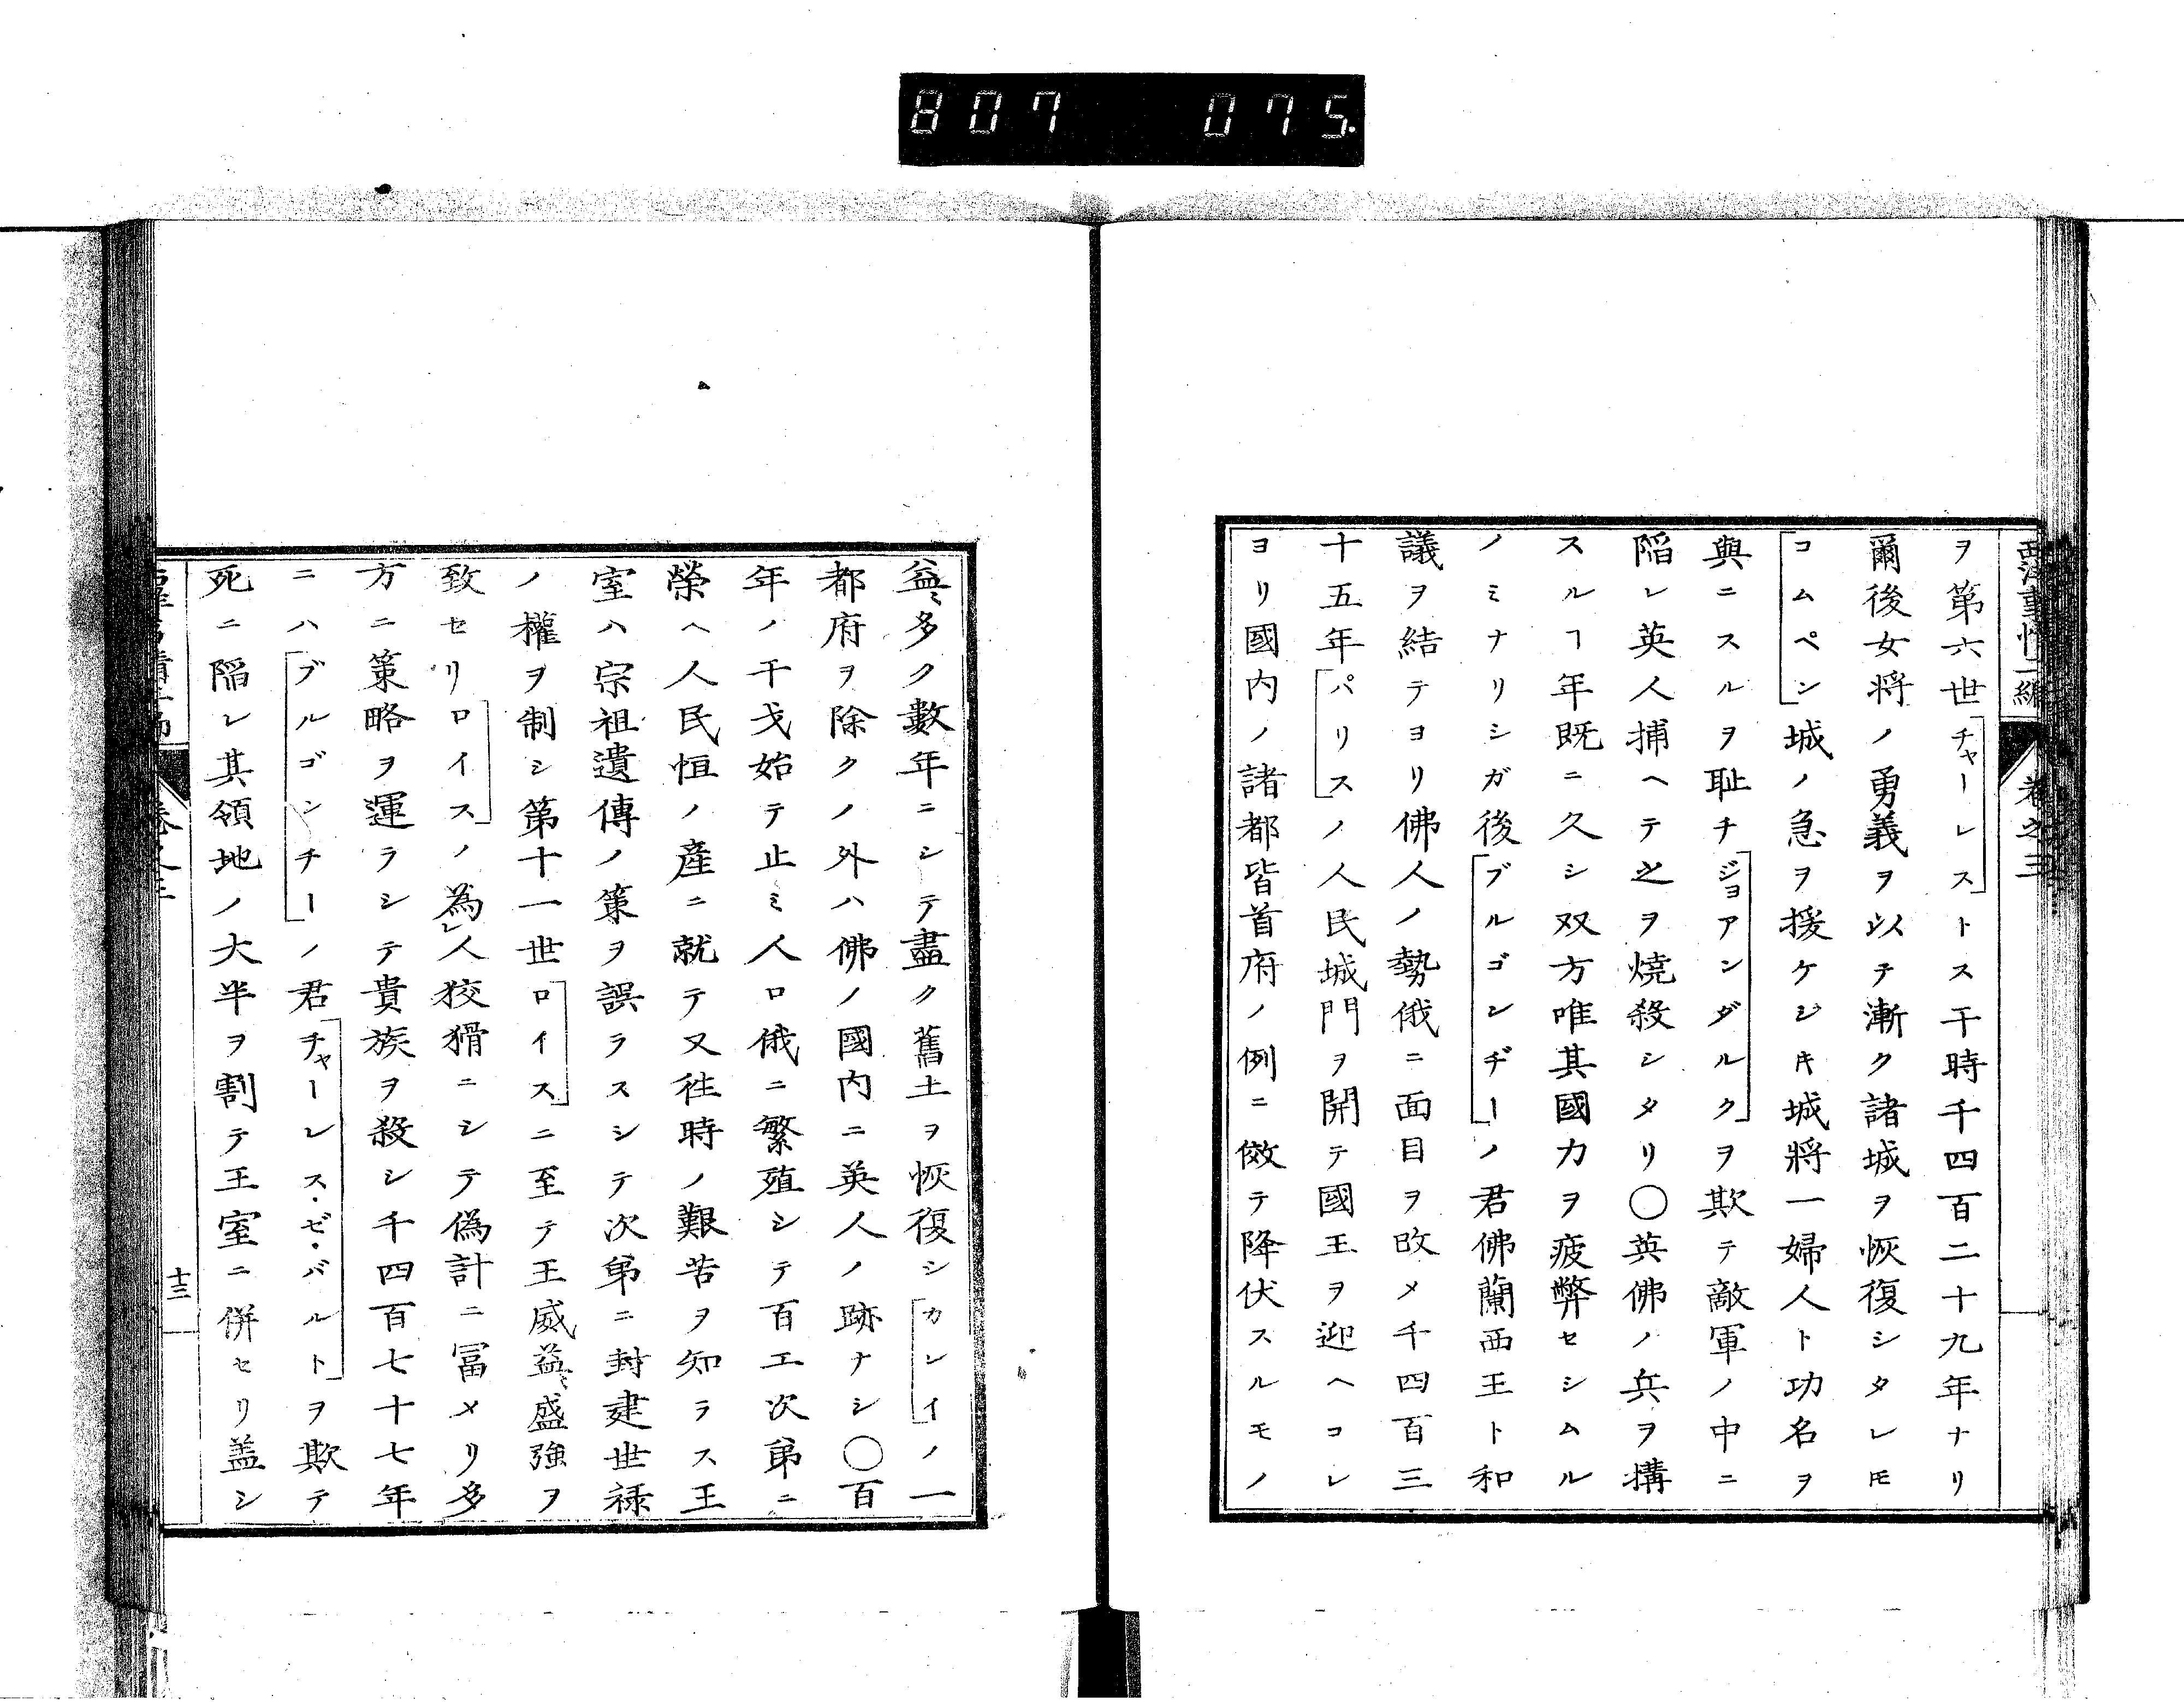 807 075.
西洋事情二編 卷之三
ヲ第六世「チャーレス」トス干時千四百二十九年ナリ
爾後女将ノ勇義ヲ以テ漸ク諸城ヲ恢復シタレ𪜈
「コムペン」城ノ急ヲ援ケシキ城將一婦人ト功名ヲ
與ニスルヲ耻チ「ジョアンダルク」ヲ欺テ敵軍ノ中ニ
陷レ英人捕ヘテ之ヲ燒殺シタリ〇英佛ノ兵ヲ搆
スルヿ年既ニ久シ双方唯其國力ヲ疲弊セシムル
ノミナリシガ後「ブルゴンヂー」ノ君佛蘭西王ト和
議ヲ結テヨリ佛人ノ勢俄ニ面目ヲ改メ千四百三
十五年「パリス」ノ人民城門ヲ開テ國王ヲ迎ヘコレ
ヨリ國内ノ諸都皆首府ノ例ニ傚テ降伏スルモノ
益〻多ク數年ニシテ盡ク舊土ヲ恢復シ「カレイ」ノ一
都府ヲ除クノ外ハ佛ノ國内ニ英人ノ跡ナシ〇百
年ノ干戈始テ止ミ人口俄ニ繁殖シテ百工次第ニ
榮ヘ人民恒ノ産ニ就テ又徃時ノ艱苦ヲ知ラス王
室ハ宗祖遺傳ノ策ヲ誤ラスシテ次第ニ封建世祿
ノ權ヲ制シ第十一世「ロイス」ニ至テ王威益〻盛強ヲ
致セリ「ロイス」ノ為レ人狡猾ニシテ偽計ニ冨メリ多
方ニ策略ヲ運ラシテ貴族ヲ殺シ千四百七十七年
ニハ「ブルゴンチー」ノ君「チャーレス・ゼ・バルト」ヲ欺テ
死ニ陷レ其領地ノ大半ヲ割テ王室ニ併セリ盖シ
十三